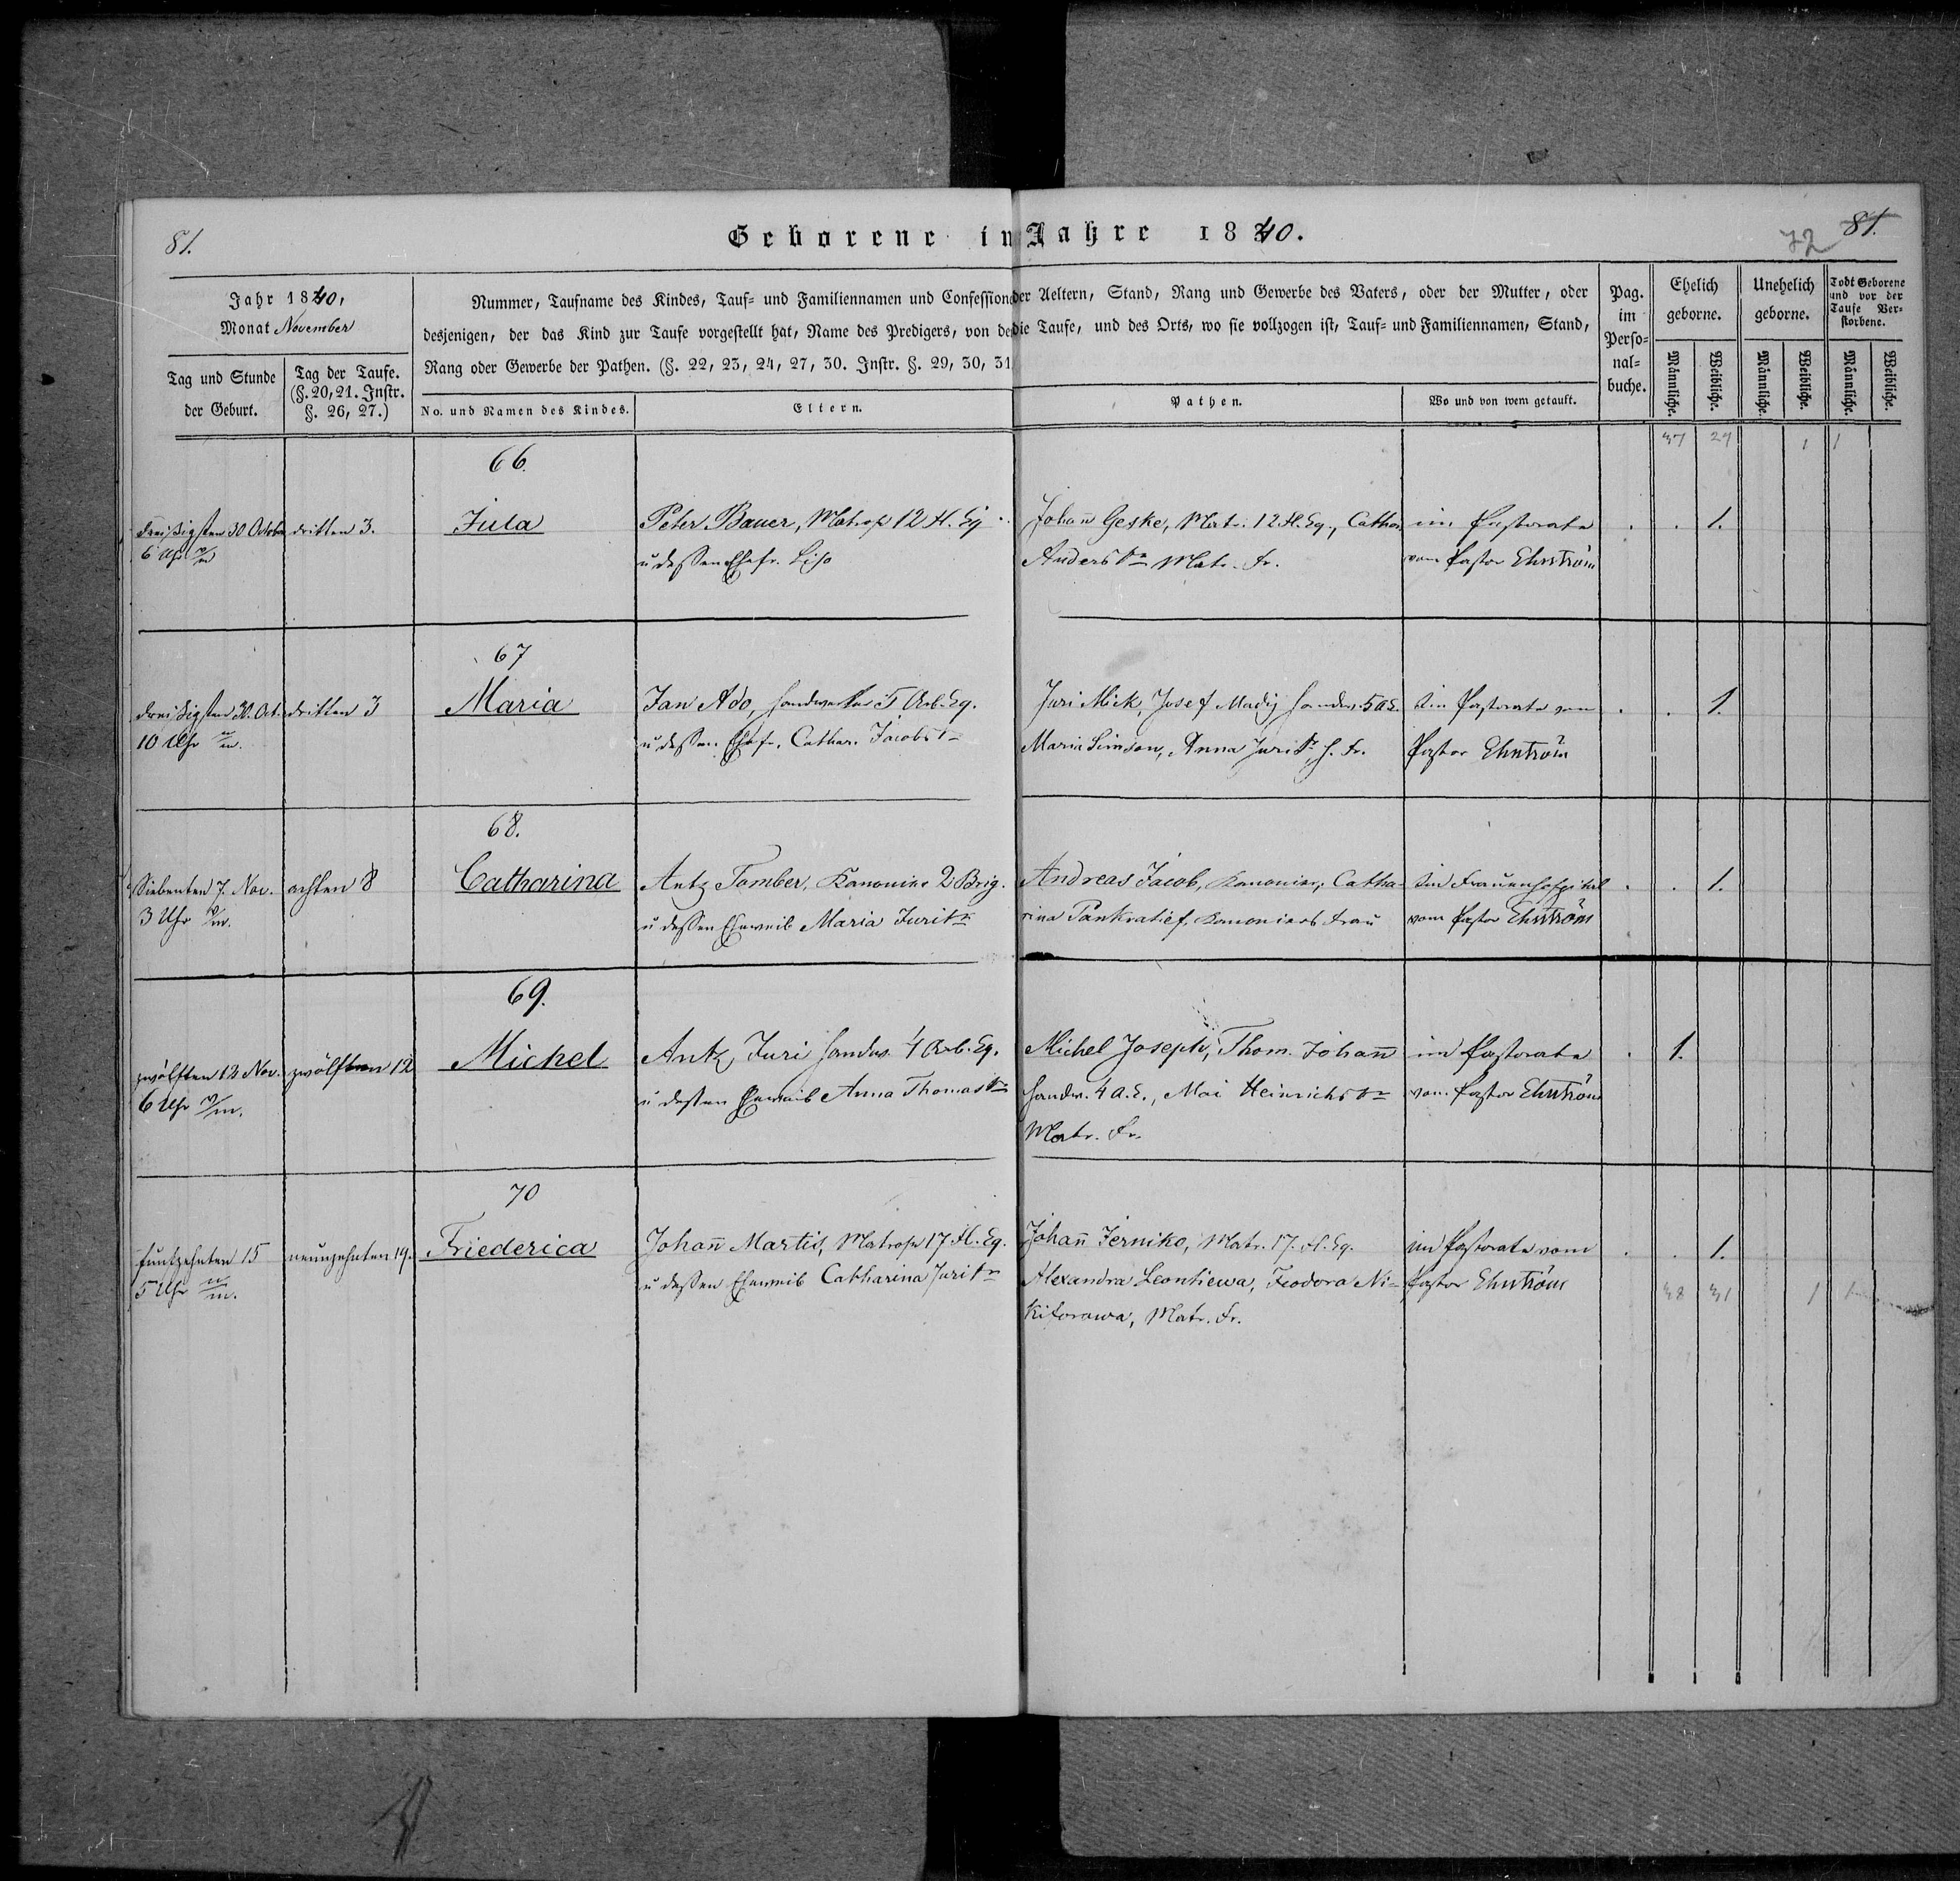 81.
Geborene im Jahre 1840.
72 81.
Jahr 1840,
Monat November
Tag und Stunde
der Geburt.
Tag der Taufe.
(§. 20, 21. Instr.
§. 26, 27.)
Nummer, Taufname des Kindes, Tauf= und Familiennamen und Confession der Aeltern, Stand, Rang und Gewerbe des Vaters, oder der Mutter, oder
desjenigen, der das Kind zur Taufe vorgestellt hat, Name des Predigers, von die Taufe, und des Orts, wo sie vollzogen ist, Tauf= und Familiennamen, Stand,
Rang oder Gewerbe der Pathen. (§. 22, 23, 24, 27, 30. Instr. §. 29, 30, 31
No. und Namen des Kindes.
Eltern.
Pathen.
Wo und von wem getauft.
Pag.
im
Perso=
nal=
buche.
Ehelich
geborne.
Unehelich
geborne.
Todt Geborene
und vor der
Taufe Ver=
storbene.
Männliche.
Weibliche.
Männliche.
Weibliche.
Männliche.
Weibliche.
37 29 1 1
66.
dreißigsten 30 Octobr
6 Uhr n/m
dritten 3.
Jula
Peter Bauer, Matrose 12 Fl. Eq.
u dessen Ehefr. Liso
Johan̄ Geske, Matr. 12 Fl. Eq., Cathar
Anders Matr. Fr.
im Pastorate
vom Pastor Ehrström
. . 1.
67
dreißigsten 30. Oct.
10 Uhr n/m.
dritten 3
Maria
Jan Ado, Handwerker 5 Arb. Eq.
u dessen Ehefr. Cathar. Jacobs
Juri Mick, Josef Madis Handw. 5 A.E.
Maria Simson, Anna Juri H. Fr.
Im Pastorate vom
Pastor Ehrström
. . 1.
68.
Siebenten 7. Nov.
3 Uhr v/m.
achten 8
Catharina
Antz Tomber, Kanonier 2 Brig.
u dessen Eheweib Maria Juri
Andreas Jacob, Kanonier, Catha=
rina Pankratief, Kanoniers Frau
Im Frauenhospital
vom Pastor Ehrström
. . 1.
69.
zwölften 12 Nov.
6 Uhr v/m.
zwölften 12
Michel
Antz Juri Handw. 4 Arb. Eq.
u dessen Eheweib Anna Thomas
Michel Joseph, Thom. Johan̄
Handw. 4 A.E., Mai Heinrichs
Matr. Fr.
im Pastorate
vom Pastor Ehrström
. 1.
70
funfzehnten 15
5 Uhr n/m.
neunzehnten 19.
Friederica
Johan̄ Martis, Matrose 17. Fl. Eq.
u dessen Eheweib Catharina Juri
Johan̄ Jerniko, Matr. 17. Fl. Eq.
Alexandra Leontiewa, Feodora Ni=
kiforowa, Matr. Fr.
im Pastorate vom
Pastor Ehrström
. . 1.
38 31 1 1